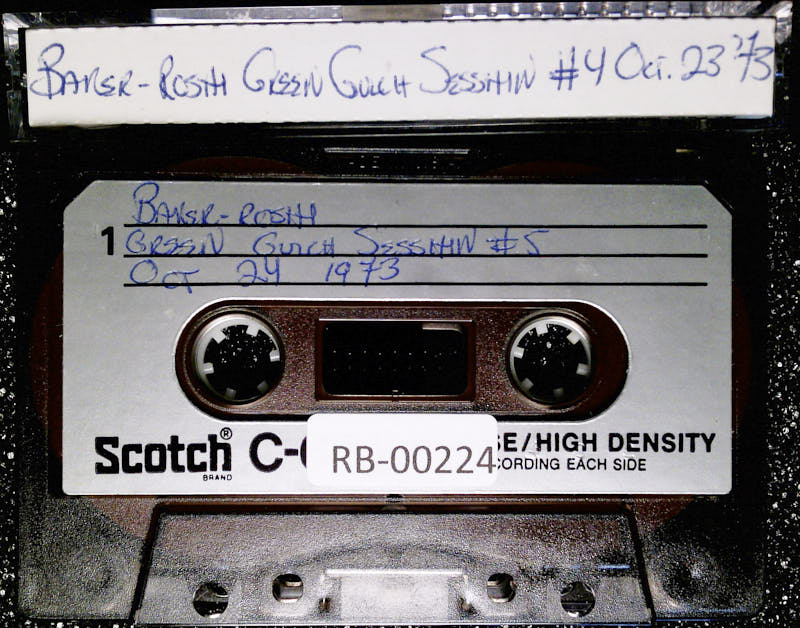 BAKER-ROSHI GREEN GULCH SESSHIN #4 OCT. 23 '73
BAKER-ROSHI
1 GREEN GULCH SESSHIN #5
OCT 24 1973
Scotch® C- SE/HIGH DENSITY
BRAND CORDING EACH SIDE
RB-00224